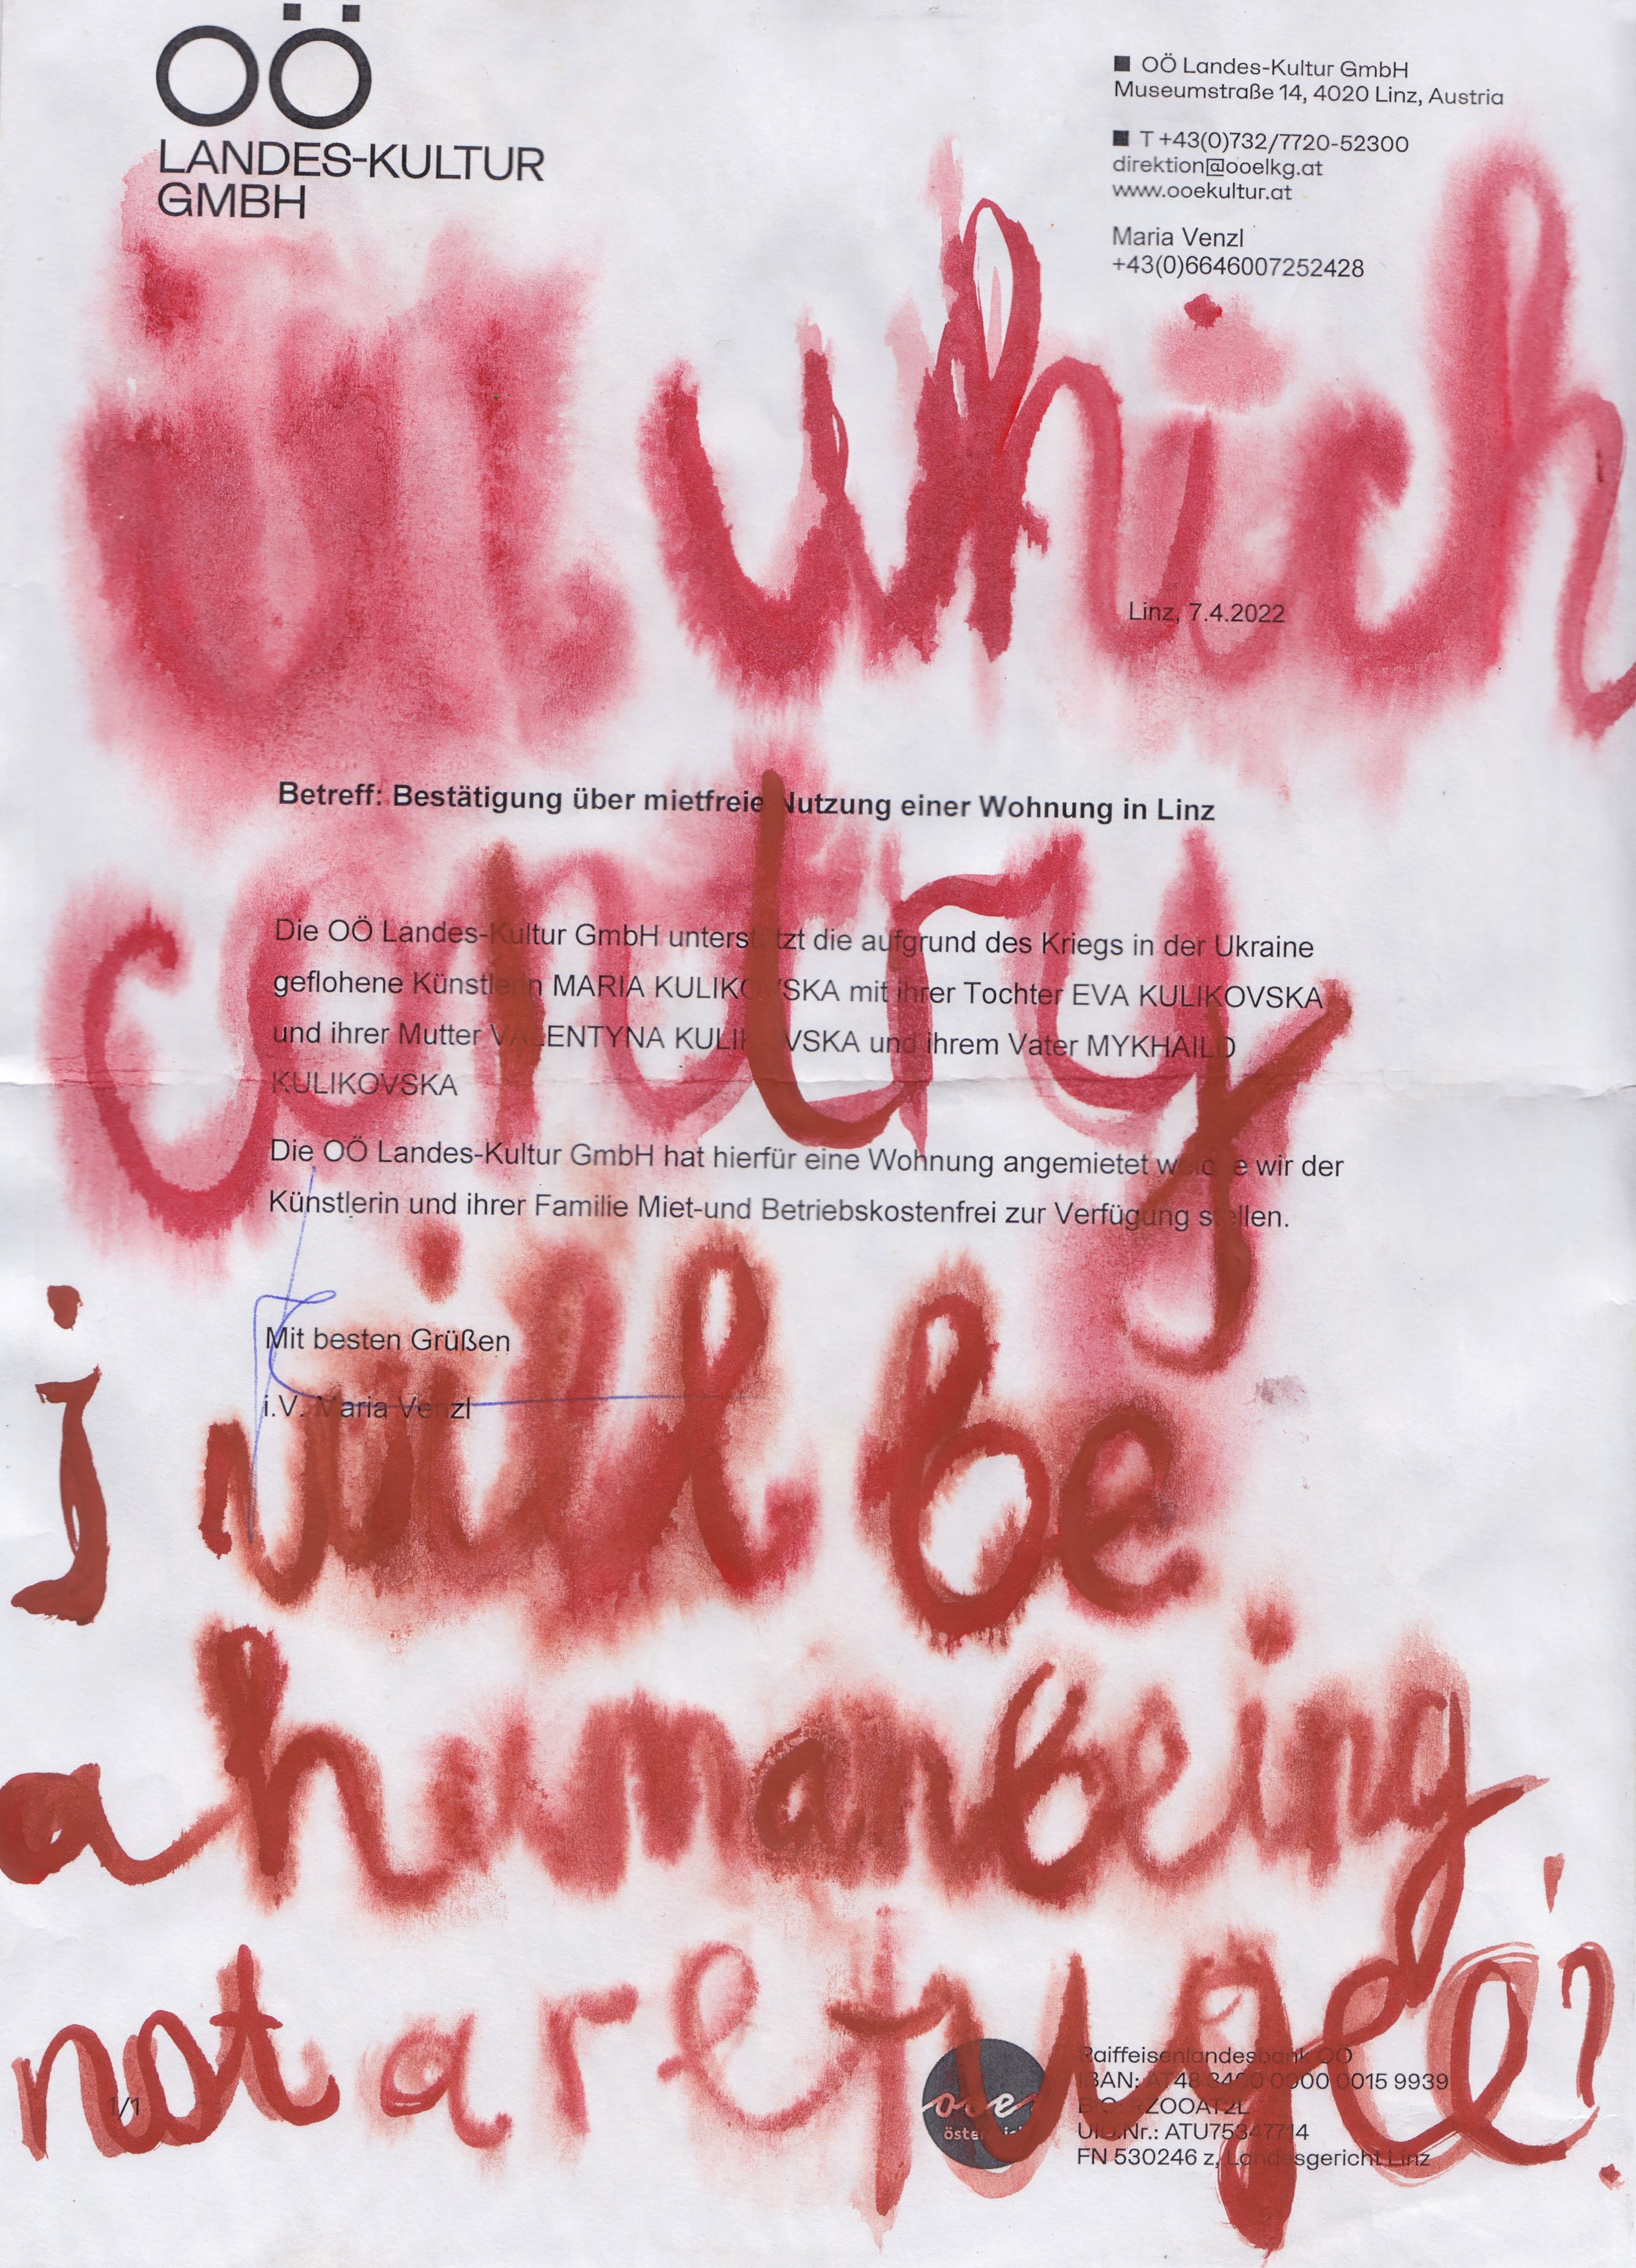 OÖ
LANDES-KULTUR
GMBH
OÖ Landes-Kultur GmbH
Museumstraße 14, 4020 Linz, Austria
T +43(0)732/7720-52300
direktion@ooelkg.at
www.ooekultur.at
Maria Venzl
+43(0)6646007252428
Linz, 7.4.2022
Betreff: Bestätigung über mietfreie Nutzung einer Wohnung in Linz
Die OÖ Landes-Kultur GmbH unterstützt die aufgrund des Kriegs in der Ukraine
geflohene Künstlerin MARIA KULIKOVSKA mit ihrer Tochter EVA KULIKOVSKA
und ihrer Mutter VALENTYNA KULIKOVSKA und ihrem Vater MYKHAILO
KULIKOVSKA
Die OÖ Landes-Kultur GmbH hat hierfür eine Wohnung angemietet welche wir der
Künstlerin und ihrer Familie Miet-und Betriebskostenfrei zur Verfügung stellen.
Mit besten Grüßen
i.V. Maria Venzl
which
contry
i will be
a human being
not a refugee?
1/1
Raiffeisenlandesbank OÖ
IBAN: AT48 3400 0000 0015 9939
BIC: RZOOAT2L
UID.Nr.: ATU75347714
FN 530246 z, Landesgericht Linz